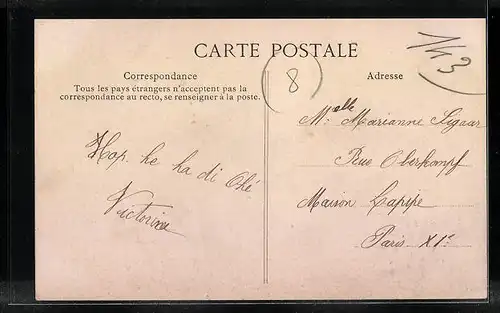 CARTE POSTALE
143
8
Correspondance
Tous les pays étrangers n'acceptent pas la
correspondance au recto, se renseigner à la poste.
Adresse
Hop. he ha di Ohé
Victorine
Melle Marianne Sigaar
Rue Oberkampf
Maison Lapipe
Paris XIe